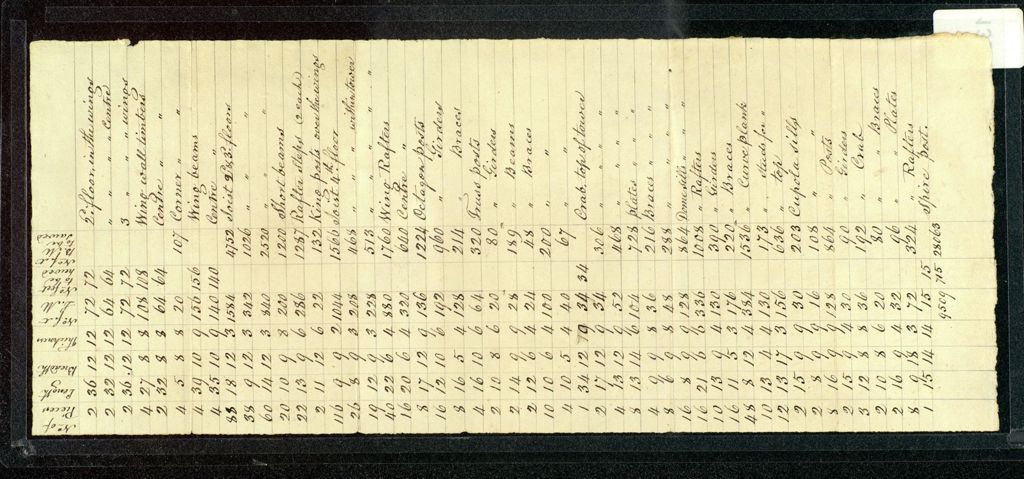 No. of Pieces Length Breadth Thickness No. ft. L.M No. feet to be hewed No. ft. B.M to be sawed
2 36 12 12 72 72 floor in the wings
2 32 12 12 64 64 " " " Centre
2 36 12 12 72 72 3 " " wings
4 27 8 8 108 108 Wing wall timbers
2 32 8 8 64 64 Centre " "
4 5 8 8 20 107 Corner " "
4 39 10 9 156 156 Wing beams
4 35 10 9 140 140 Centre "
88 18 12 3 1584 4752 Joist 2 & 3 floors
38 9 12 3 342 1026 " "
60 14 12 3 840 2520 " "
20 10 9 8 200 1200 Short beams
22 13 9 6 286 1287 Rafter steps each
2 11 12 6 22 132 King posts over the wings
116 9 9 2 1044 1566 Joist 4th floor
26 8 9 3 208 468 " " within tower
19 12 9 3 228 513 " " "
40 22 6 4 880 1760 Wing Rafters
16 20 6 4 320 640 Centre "
8 17 12 9 136 1224 Octagon posts
16 12 10 6 192 960 " Girders
8 16 5 4 128 214 " Braces
4 16 10 6 64 320 Truss posts
2 10 8 6 20 80 " Girders
2 14 9 9 28 189 " Beams
2 12 6 4 24 48 " Braces
10 10 6 4 100 200 " "
10 4 5 4 40 67 " "
1 34 12 10 34 34 Crab, top of tower
2 17 12 9 34 306 " " " "
4 13 12 9 52 468 " " " "
8 13 14 6 104 728 " plates "
4 9 9 8 36 216 " Braces "
8 6 9 8 48 288 " " "
16 8 9 9 128 864 Dome sills
16 21 6 6 336 1008 " Rafters
10 13 9 4 130 390 " Girders
16 11 5 3 176 220 " Braces
48 8 12 4 384 1536 " Curve plank
10 13 4 4 130 173 " studs for "
12 13 17 3 156 636 " top "
2 15 9 9 30 203 Cupola sills
2 8 9 9 16 108 " "
8 16 9 9 128 864 " Posts
2 15 9 4 30 90 " Girders
3 12 8 8 36 192 " Crab
2 10 8 6 20 80 " " Braces
2 16 9 4 32 96 " " Plates
8 9 18 3 72 324 " Rafters
1 15 14 14 15 15 Spire post
9509 715 28063